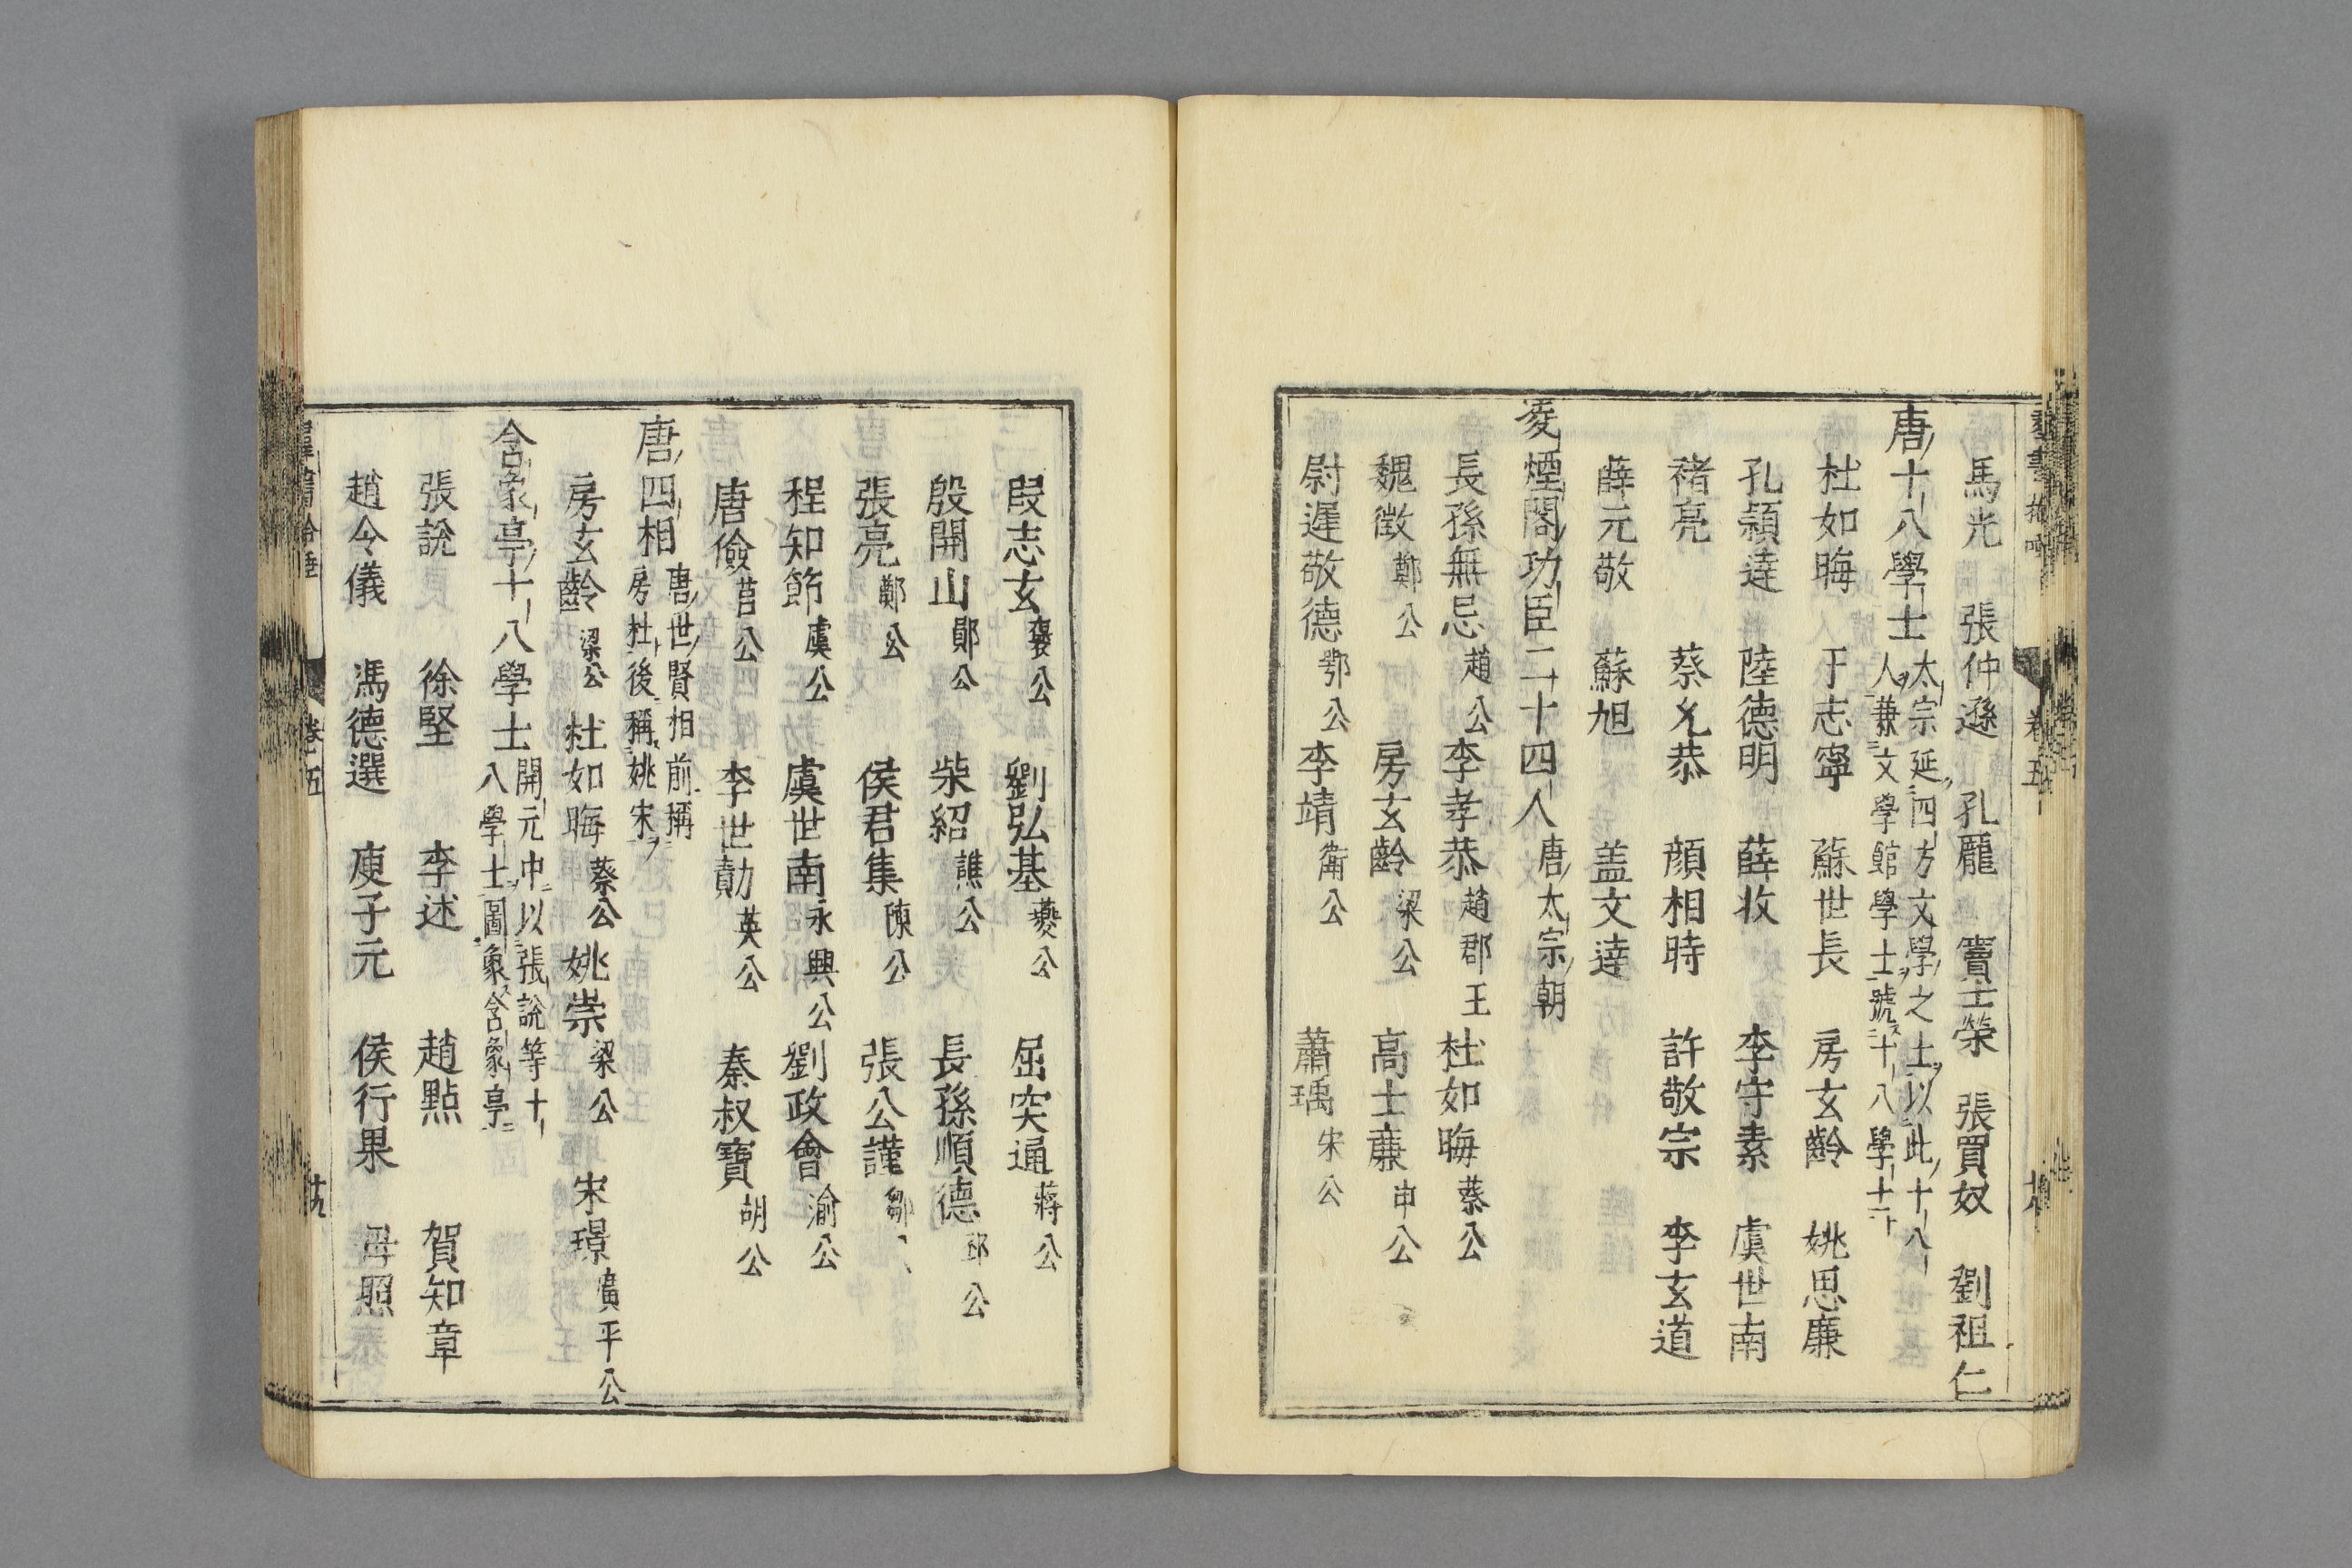 馬光　張仲遜　孔籠　竇士榮　張買奴　劉祖仁
唐十八學士 太宗延四方文學之士以此十八
人兼文學館學士號十八學士
杜如晦　于志寧　蘇世長　房玄齡　姚思廉
孔頴達　陸德明　薛收　李守素　虞世南
褚亮　蔡允恭　顔相時　許敬宗　李玄道
薛元敬　蘇旭　盖文達
凌煙閣功臣二十四人 唐太宗朝
長孫無忌 趙公 李孝恭 趙郡王 杜如晦 蔡公
魏徵 鄭公 房玄齡 梁公 高士廉 申公
尉遲敬德 鄂公 李靖 衛公 蕭瑀 宋公
段志玄 褒公 劉弘基 夔公 屈突通 蔣公
殷開山 鄖公 柴紹 譙公 長孫順德 邳公
張亮 鄭公 侯君集 陳公 張公謹 鄒
程知節 虞公 虞世南 永興公 劉政會 渝公
唐儉 莒公 李世勣 英公 秦叔寶 胡公
唐四相 唐世賢相前稱
房杜後稱姚宋
房玄齡 梁公 杜如晦 蔡公 姚崇 梁公 宋璟 廣平公
含象亭十八學士 開元中以張説等十
八學士圖象含象亭
張説　徐堅　李述　趙點　賀知章
趙令儀　馮德選　庾子元　侯行果　毋照
卷五
卷五